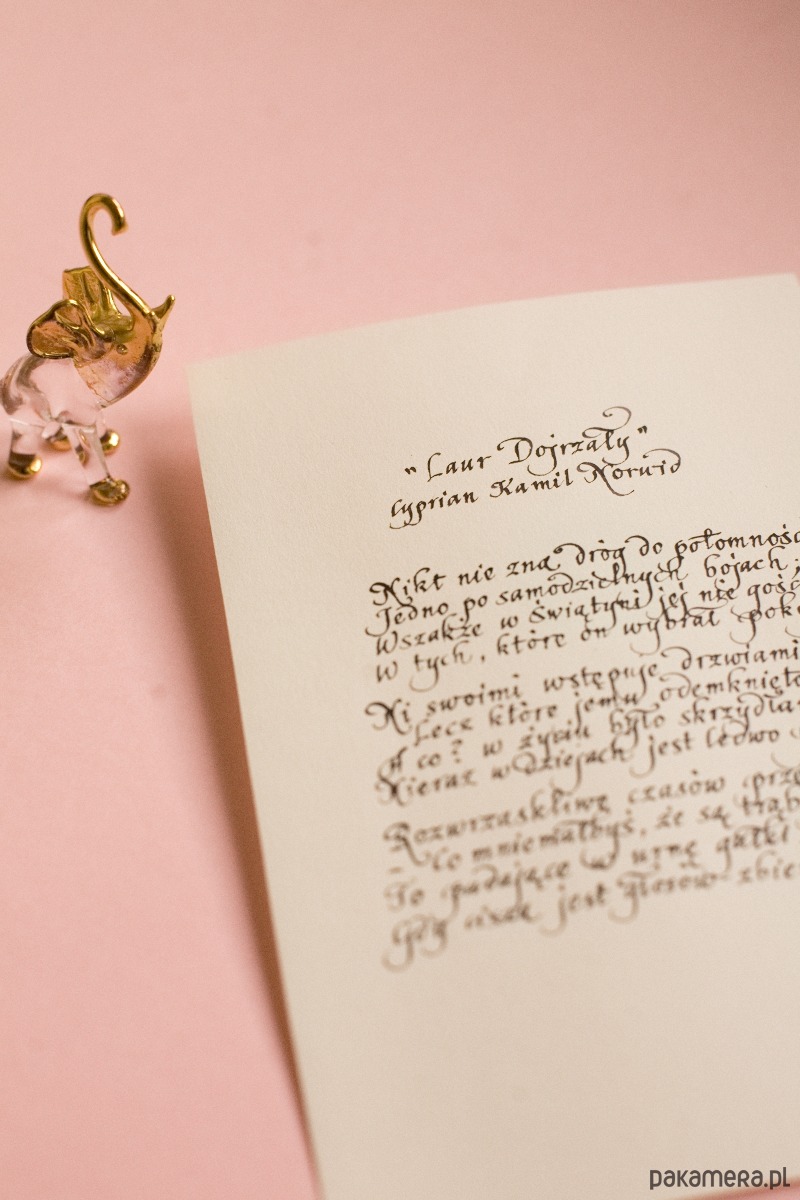 "Laur Dojrzały"
Cyprian Kamil Norwid
Nikt nie zna dróg do potomnośc
Jedno po samodzielnych bojach;
Wszakże w świątyni jej nie gośc
W tych, które on wybrał poko
Ni swoimi wstępuje drzwiami
Lecz które jemu odemknięto
A co? w życiu było skrzydła
Nieraz w dziejach jest ledwo
Rozwrzaskliwe czasów prze
– Co mniemałbyś, że są trąb
To padające w urnę gałki
Gdy cisza jest głosów-zbie
pakamera.pl